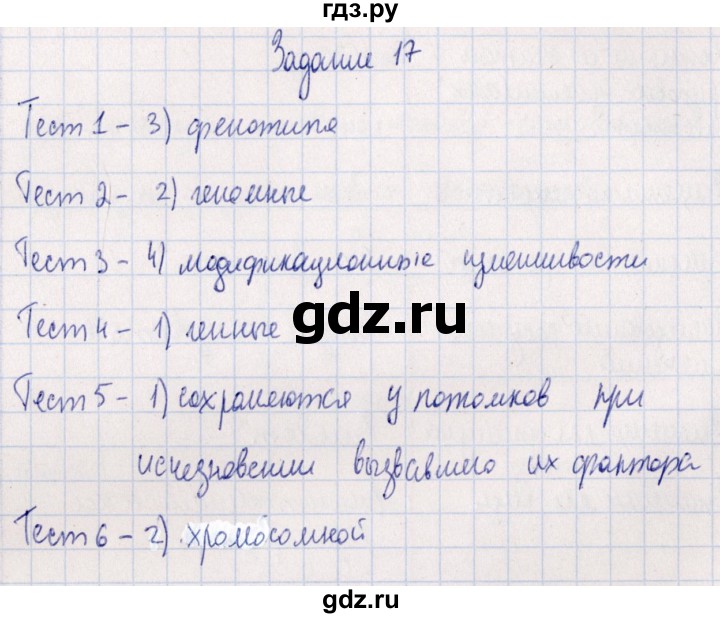 гдз.ру
Задание 17
Тест 1 - 3) фенотипа
Тест 2 - 2) геномные
Тест 3 - 4) модификационные изменчивости
Тест 4 - 1) генные
gdz.ru
Тест 5 - 1) сохраняются у потомков при
исчезновении вызвавшего их фактора
Тест 6 - 2) хромосомной
gdz.ru